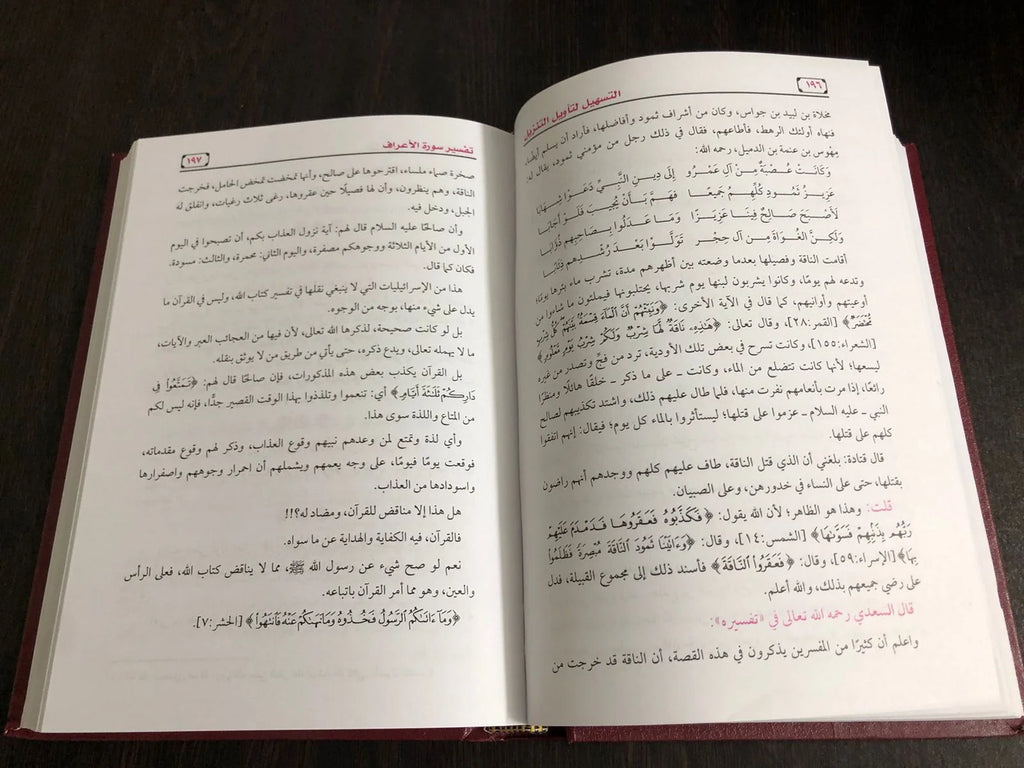 ١٩٦
التسهيل لتأويل التنزيل
مخلاة بن لبيد بن جواس، وكان من أشراف ثمود وأفاضلها، فأراد أن يسلم أيضًا،
فنهاه أولئك الرهط، فأطاعهم، فقال في ذلك رجل من مؤمني ثمود، يقال له:
مِهْوَس بن عنمة بن الدميل، رحمه الله:
وَكَانَتْ عُصْبَةٌ مِنْ آلِ عَمْرُو إِلَى دِينِ النَّبِيِّ دَعَوْا شِهَابًا
عَزِيزُ ثَمُودَ كُلِّهِمُ جَمِيعًا فَهَمَّ بِأَنْ يُجِيبَ فَلَوْ أَجَابَا
لَأَصْبَحَ صَالِحٌ فِينَا عَزِيزًا وَمَا عَدَلُوا بِصَاحِبِهِمْ ذُؤَابَا
وَلَكِنَّ الْغُوَاةَ مِنْ آلِ حِجْرٍ تَوَلَّوْا بَعْدَ رُشْدِهِمُ
أقامت الناقة وفصيلها بعدما وضعته بين أظهرهم مدة، تشرب ماء بئرها يومًا،
وتدعه لهم يومًا، وكانوا يشربون لبنها يوم شربها، يحتلبونها فيملئون ما شاءوا من
أوعيتهم وأوانيهم، كما قال في الآية الأخرى: ﴿وَنَبِّئْهُمْ أَنَّ الْمَاءَ قِسْمَةٌ بَيْنَهُمْ كُلُّ شِرْبٍ
مُّحْتَضَرٌ﴾ [القمر:٢٨]، وقال تعالى: ﴿هَٰذِهِ نَاقَةٌ لَّهَا شِرْبٌ وَلَكُمْ شِرْبُ يَوْمٍ مَّعْلُومٍ﴾
[الشعراء:١٥٥]، وكانت تسرح في بعض تلك الأودية، ترد من فجٍّ وتصدر من غيره
ليسعها؛ لأنها كانت تتضلع من الماء، وكانت ـ على ما ذكر ـ خلقًا هائلًا ومنظرًا
رائعًا، إذا مرت بأنعامهم نفرت منها، فلما طال عليهم ذلك، واشتد تكذيبهم لصالح
النبي ـ عليه السلام ـ عزموا على قتلها؛ ليستأثروا بالماء كل يوم؛ فيقال: إنهم اتفقوا
كلهم على قتلها.
قال قتادة: بلغني أن الذي قتل الناقة، طاف عليهم كلهم ووجدهم أنهم راضون
بقتلها، حتى على النساء في خدورهن، وعلى الصبيان.
قلت: وهذا هو الظاهر؛ لأن الله يقول: ﴿فَكَذَّبُوهُ فَعَقَرُوهَا فَدَمْدَمَ عَلَيْهِمْ
رَبُّهُم بِذَنبِهِمْ فَسَوَّاهَا﴾ [الشمس:١٤]، وقال: ﴿وَءَاتَيْنَا ثَمُودَ النَّاقَةَ مُبْصِرَةً فَظَلَمُوا
بِهَا﴾ [الإسراء:٥٩]، وقال: ﴿فَعَقَرُوا النَّاقَةَ﴾ فأسند ذلك إلى مجموع القبيلة، فدل
على رضي جميعهم بذلك، والله أعلم.
قال السعدي رحمه الله تعالى في «تفسيره»:
واعلم أن كثيرًا من المفسرين يذكرون في هذه القصة، أن الناقة قد خرجت من
تفسير سورة الأعراف
١٩٧
صخرة صماء ملساء، اقترحوها على صالح، وأنها تمخضت تمخض الحامل، فخرجت
الناقة، وهم ينظرون، وأن لها فصيلًا حين عقروها، رغى ثلاث رغيات، وانفلق له
الجبل، ودخل فيه.
وأن صالحًا عليه السلام قال لهم: آية نزول العذاب بكم، أن تصبحوا في اليوم
الأول من الأيام الثلاثة ووجوهكم مصفرة، واليوم الثاني: محمرة، والثالث: مسودة.
فكان كما قال.
هذا من الإسرائيليات التي لا ينبغي نقلها في تفسير كتاب الله، وليس في القرآن ما
يدل على شيء منها، بوجه من الوجوه.
بل لو كانت صحيحة، لذكرها الله تعالى، لأن فيها من العجائب العبر والآيات،
ما لا يهمله تعالى، ويدع ذكره، حتى يأتي من طريق من لا يوثق بنقله.
بل القرآن يكذب بعض هذه المذكورات، فإن صالحًا قال لهم: ﴿تَمَتَّعُوا فِي
دَارِكُمْ ثَلَاثَةَ أَيَّامٍ﴾ أي: تنعموا وتلذذوا بهذا الوقت القصير جدًّا، فإنه ليس لكم
من المتاع واللذة سوى هذا.
وأي لذة وتمتع لمن وعدهم نبيهم وقوع العذاب، وذكر لهم وقوع مقدماته،
فوقعت يومًا فيومًا، على وجه يعمهم ويشملهم أن احمرار وجوههم واصفرارها
واسودادها من العذاب.
هل هذا إلا مناقض للقرآن، ومضاد له؟!!
فالقرآن، فيه الكفاية والهداية عن ما سواه.
نعم لو صح شيء عن رسول الله ﷺ، مما لا يناقض كتاب الله، فعلى الرأس
والعين، وهو مما أمر القرآن باتباعه.
﴿وَمَا ءَاتَاكُمُ الرَّسُولُ فَخُذُوهُ وَمَا نَهَاكُمْ عَنْهُ فَانتَهُوا﴾ [الحشر:٧].